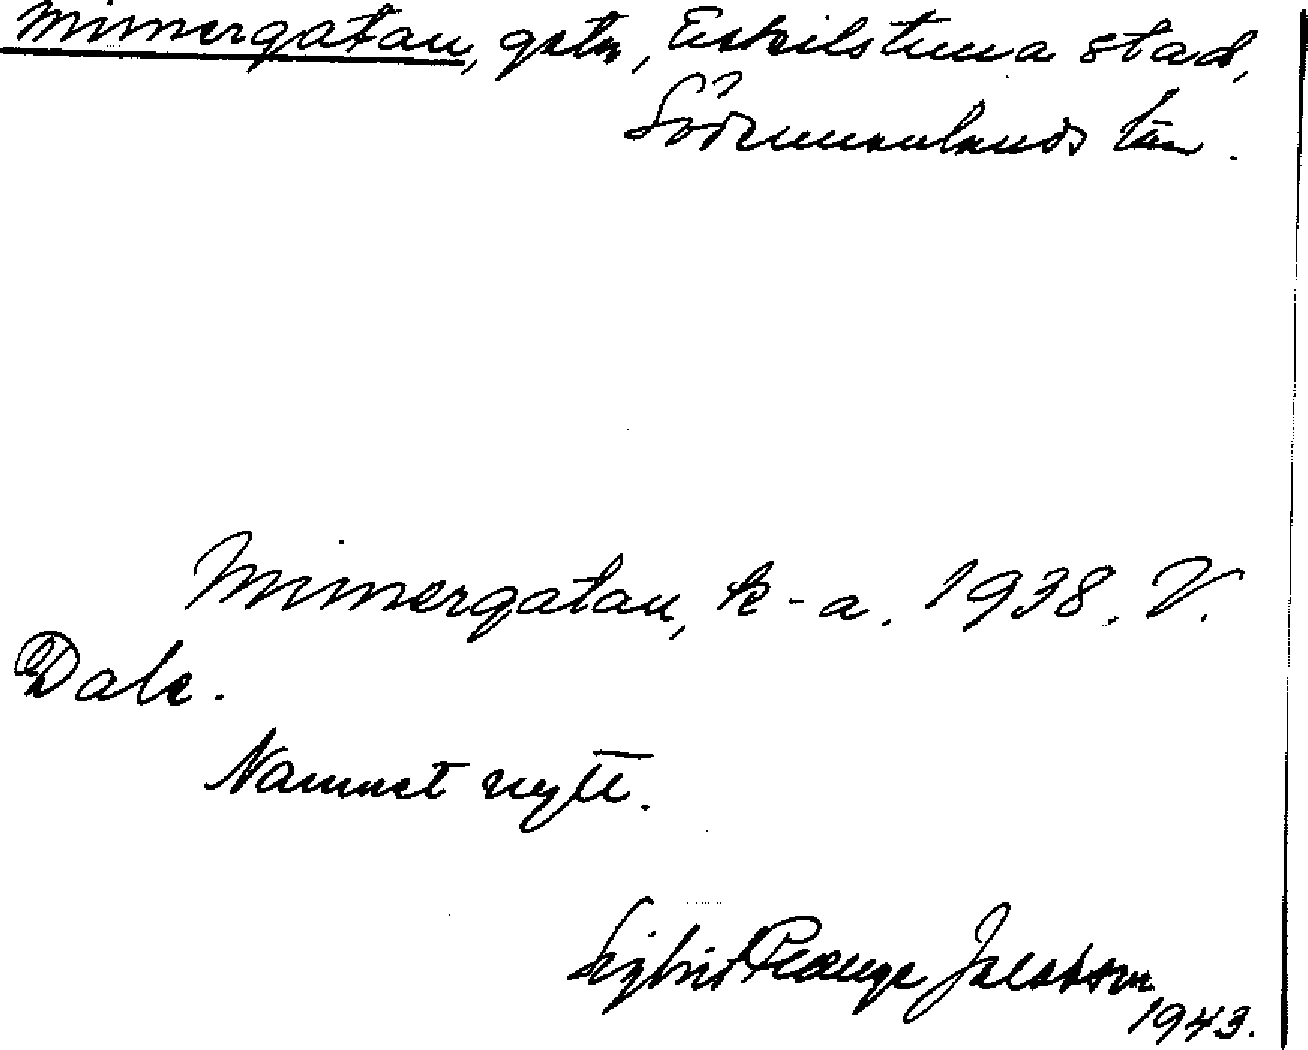 Mimergatan, gatn, Eskilstuna stad,
Södermanlands län.
Mimergatan, k-a. 1938. V.
Dale.
Namnet nytt.
Sigbrit Plænge Jacobson
1943.